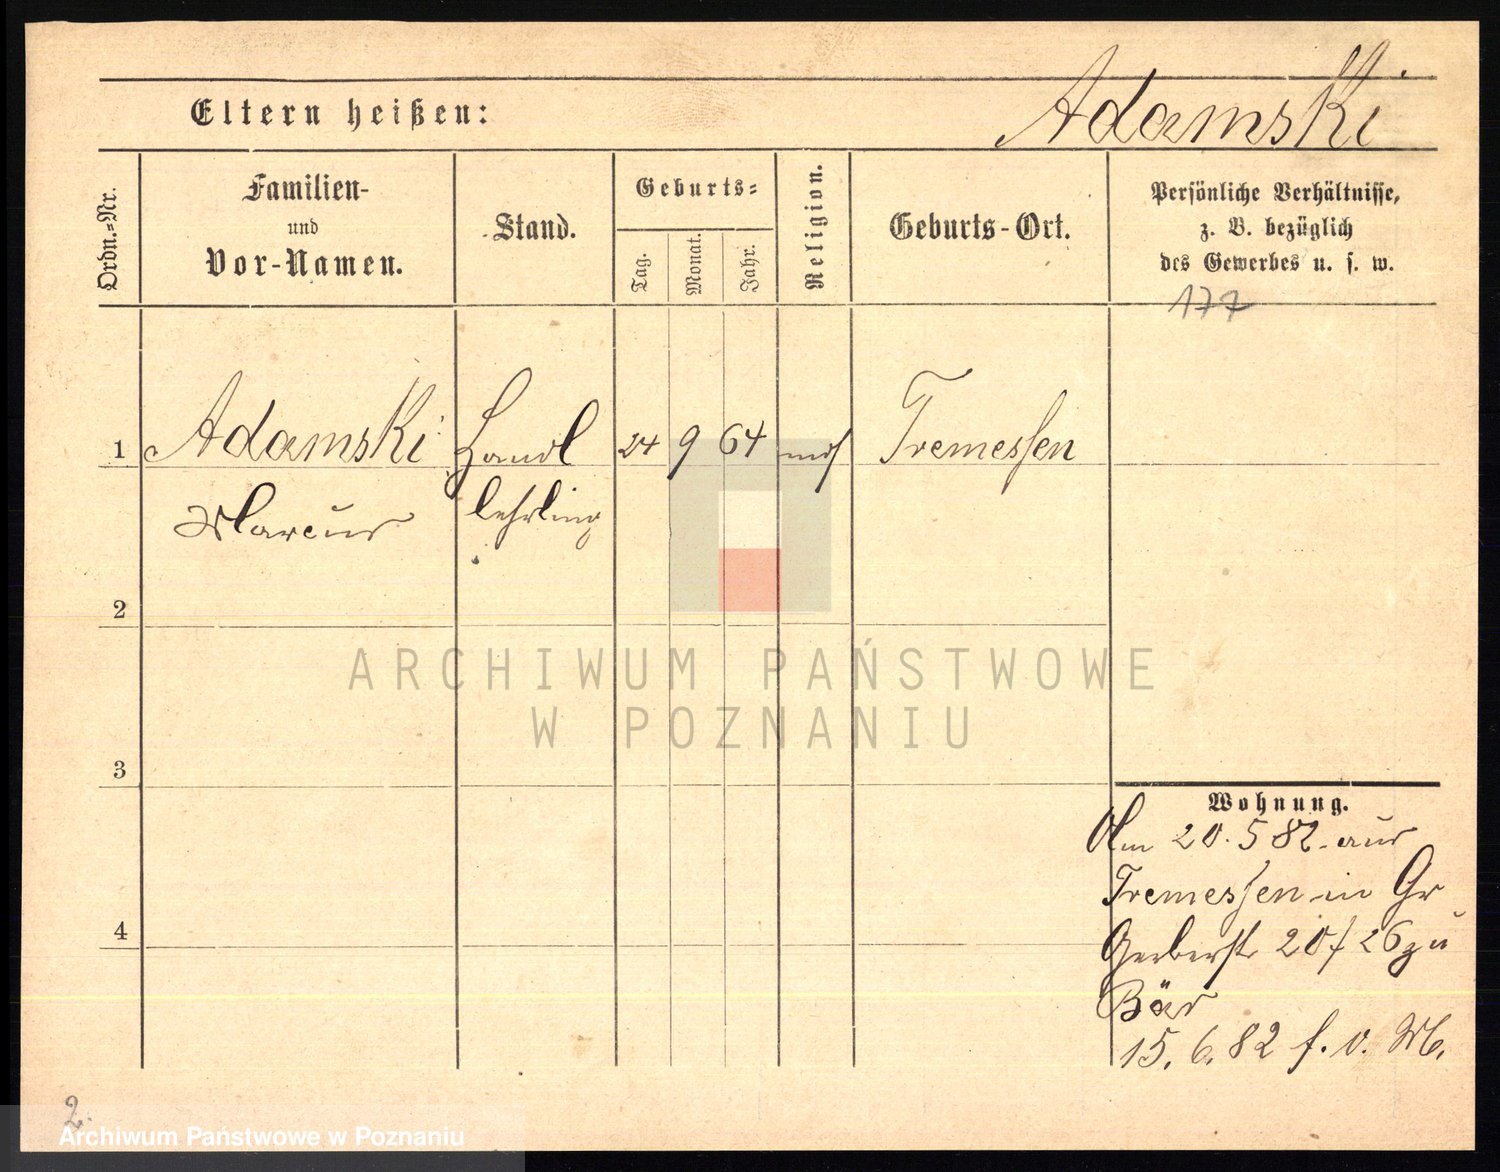 Eltern heißen:
Adamski
Ordn.=Nr.
Familien-
und
Vor-Namen.
Stand.
Geburts=
Tag.
Monat.
Jahr.
Religion.
Geburts-Ort.
Persönliche Verhältnisse,
z. B. bezüglich
des Gewerbes u. s. w.
177
1
Adamski
Handl
24
9
64
mos
Tremessen
Marcus
lehrling
2
3
4
Wohnung.
Am 20.5 82. aus
Tremessen in Gr
Gerberstr 20/26 zu
Bär
15. 6. 82 f. v. M.
2.
ARCHIWUM PAŃSTWOWE
W POZNANIU
Archiwum Państwowe w Poznaniu